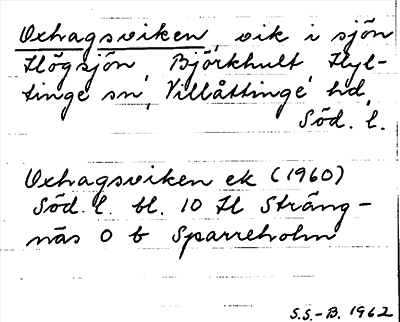 Oxhagsviken, vik i sjön
Högsjön, Björkhult, Hyl-
tinge sn, Villåttinge hd,
Söd. l.
Oxhagsviken ek (1960)
Söd. l. bl. 10 H Sträng-
näs O b Sparreholm
S.S.-B. 1962